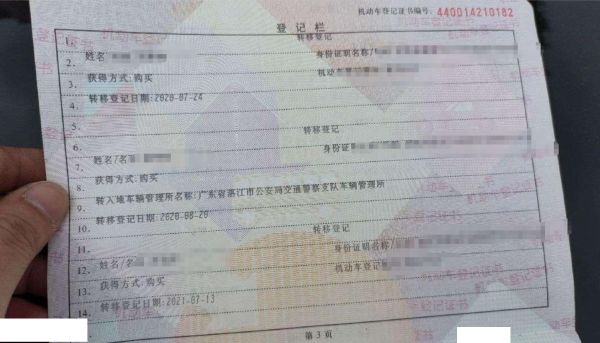 机动车登记证书编号: 440014210182
登记栏
1. 转移登记
2. 姓名 身份证明名称/
3. 获得方式:购买 机动车登记
4. 转移登记日期:2020-07-24
5.
6. 转移登记
7. 姓名/名 身份证
8. 获得方式:购买
9. 转入地车辆管理所名称:广东省湛江市公安局交通警察支队车辆管理所
10. 转移登记日期:2020-08-20
11. 转移登记
12. 姓名/名 身份证明名称/
13. 获得方式:购买 机动车登记
14. 转移登记日期:2021-07-13
第3页